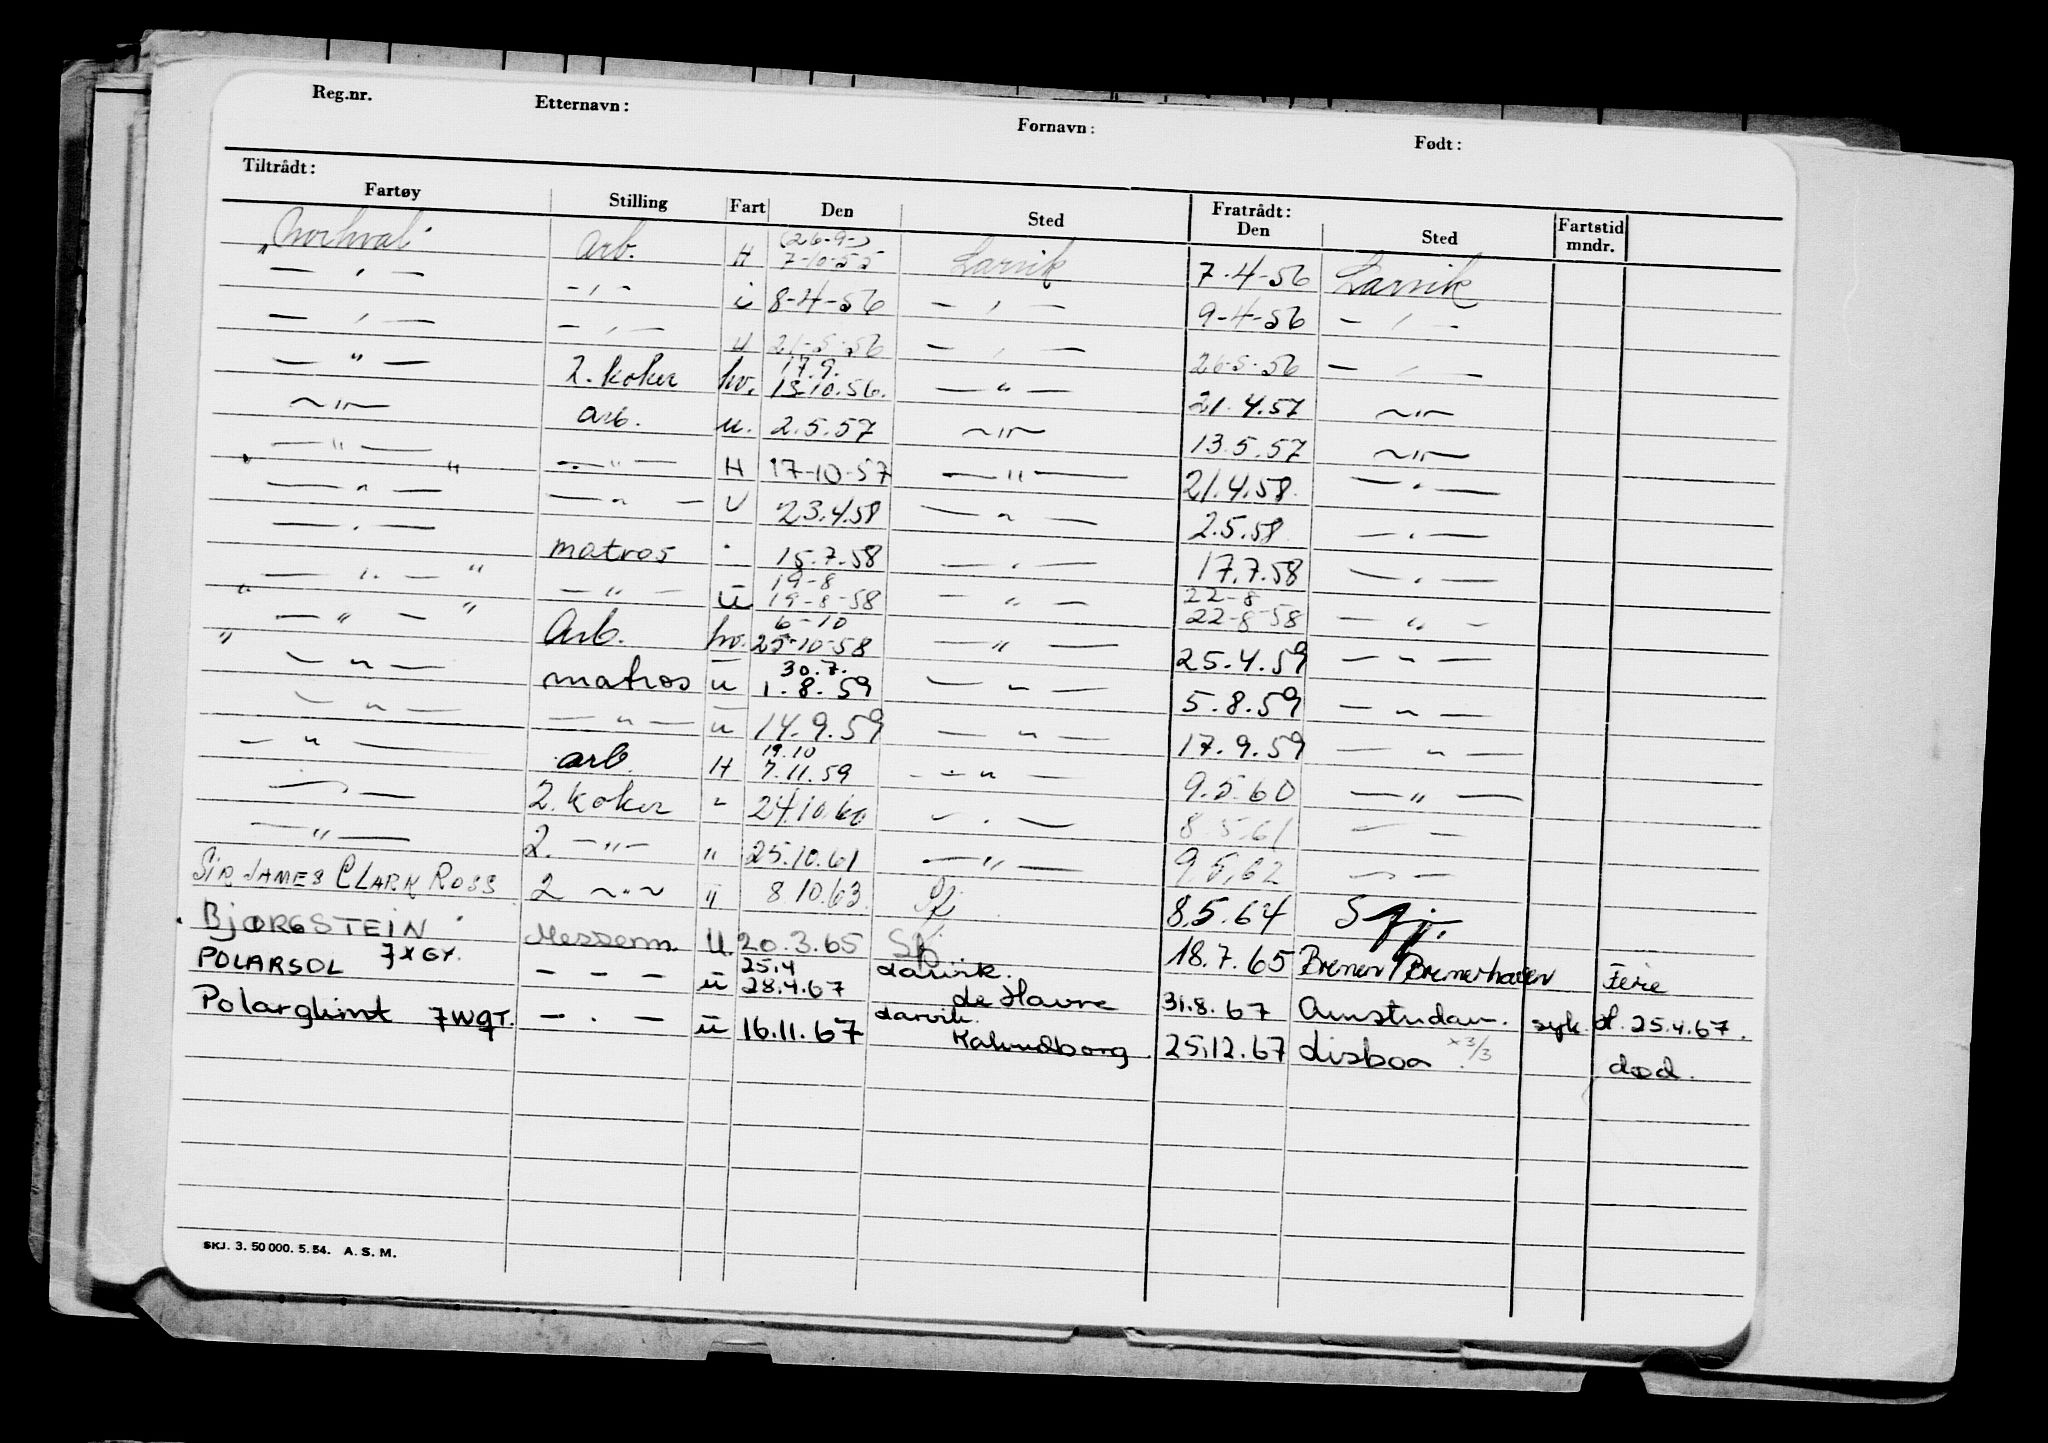 Reg.nr. Etternavn: Fornavn: Født:
Tiltrådt: Fratrådt:
Fartøy Stilling Fart Den Sted Den Sted Fartstid mndr.
"Norhval" arb. H (26-9-) 7-10-55 Larvik 7-4-56 Larvik
— , — - , - i 8-4-56 — , — 9-4-56 — , —
— , — — , — U 21-5-56 — , — 26-5-56 — , —
— " — 2. koker hv. 17.9. 13.10.56. — " — 21.4.57 ~"~
~"~ arb. u. 2.5.57 ~"~ 13.5.57 ~"~
" — " — " — " — H 17-10-57 — " — 21.4.58. — " —
— " — — " — U 23.4.58 — " — 2.5.58. — . —
— . — matros . 15.7.58 — . — 17.7.58 — . —
" — . — " — " — u 19-8 19-8-58 — " — 22-8 22-8-58 — " —
" — " — " Arb. hv. 6-10 25-10-58 — " — 25.4.59 — " —
— " — matros u 30.7. 1.8.59 — " — 5.8.59 — " —
— " — — " — u 14.9.59 — " — 17.9.59 — " —
— " — arb. H 19.10 7.11.59 — " — 9.5.60 — " —
— — 2. koker " 24.10.60 — . — 8.5.61 — —
— " — 2. — " — " 25.10.61 — " — 9.5.62 — —
SIR JAMES CLARK ROSS 2 ~"~ " 8.10.63. Sfj. 8.5.64 Sfj.
"BJØRGSTEIN" Messem. U. 20.3.65 Sfj. 18.7.65 Bremen/Bremerhaven Ferie
POLARSOL 7XGY. — — — u 25.4 28.4.67 Larvik. Le Havre 31.8.67 Amsterdam. syk. 25.4.67.
Polarglimt 7WQT. — . — u 16.11.67 Larvik. Kalundborg. 25.12.67 Lisboa x 3/3 død.
SKJ. 3. 50 000. 5. 54. A. S. M.